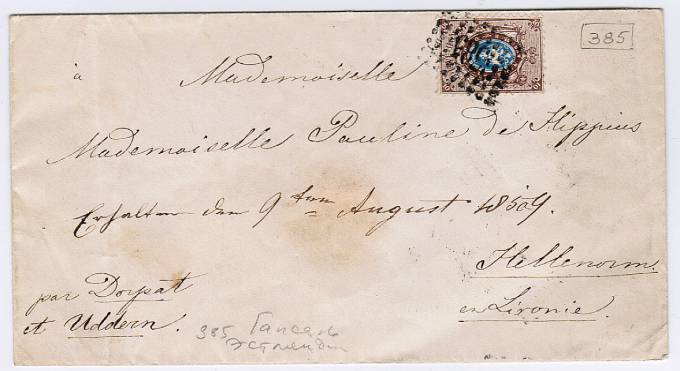 385
à Mademoiselle
Mademoiselle Pauline de Hippius
Erhalten den 9ten August 1859.
Hellenorm.
en Livonie.
par Dorpat
et Uddern.
385 Гапсаль
Эстляндии